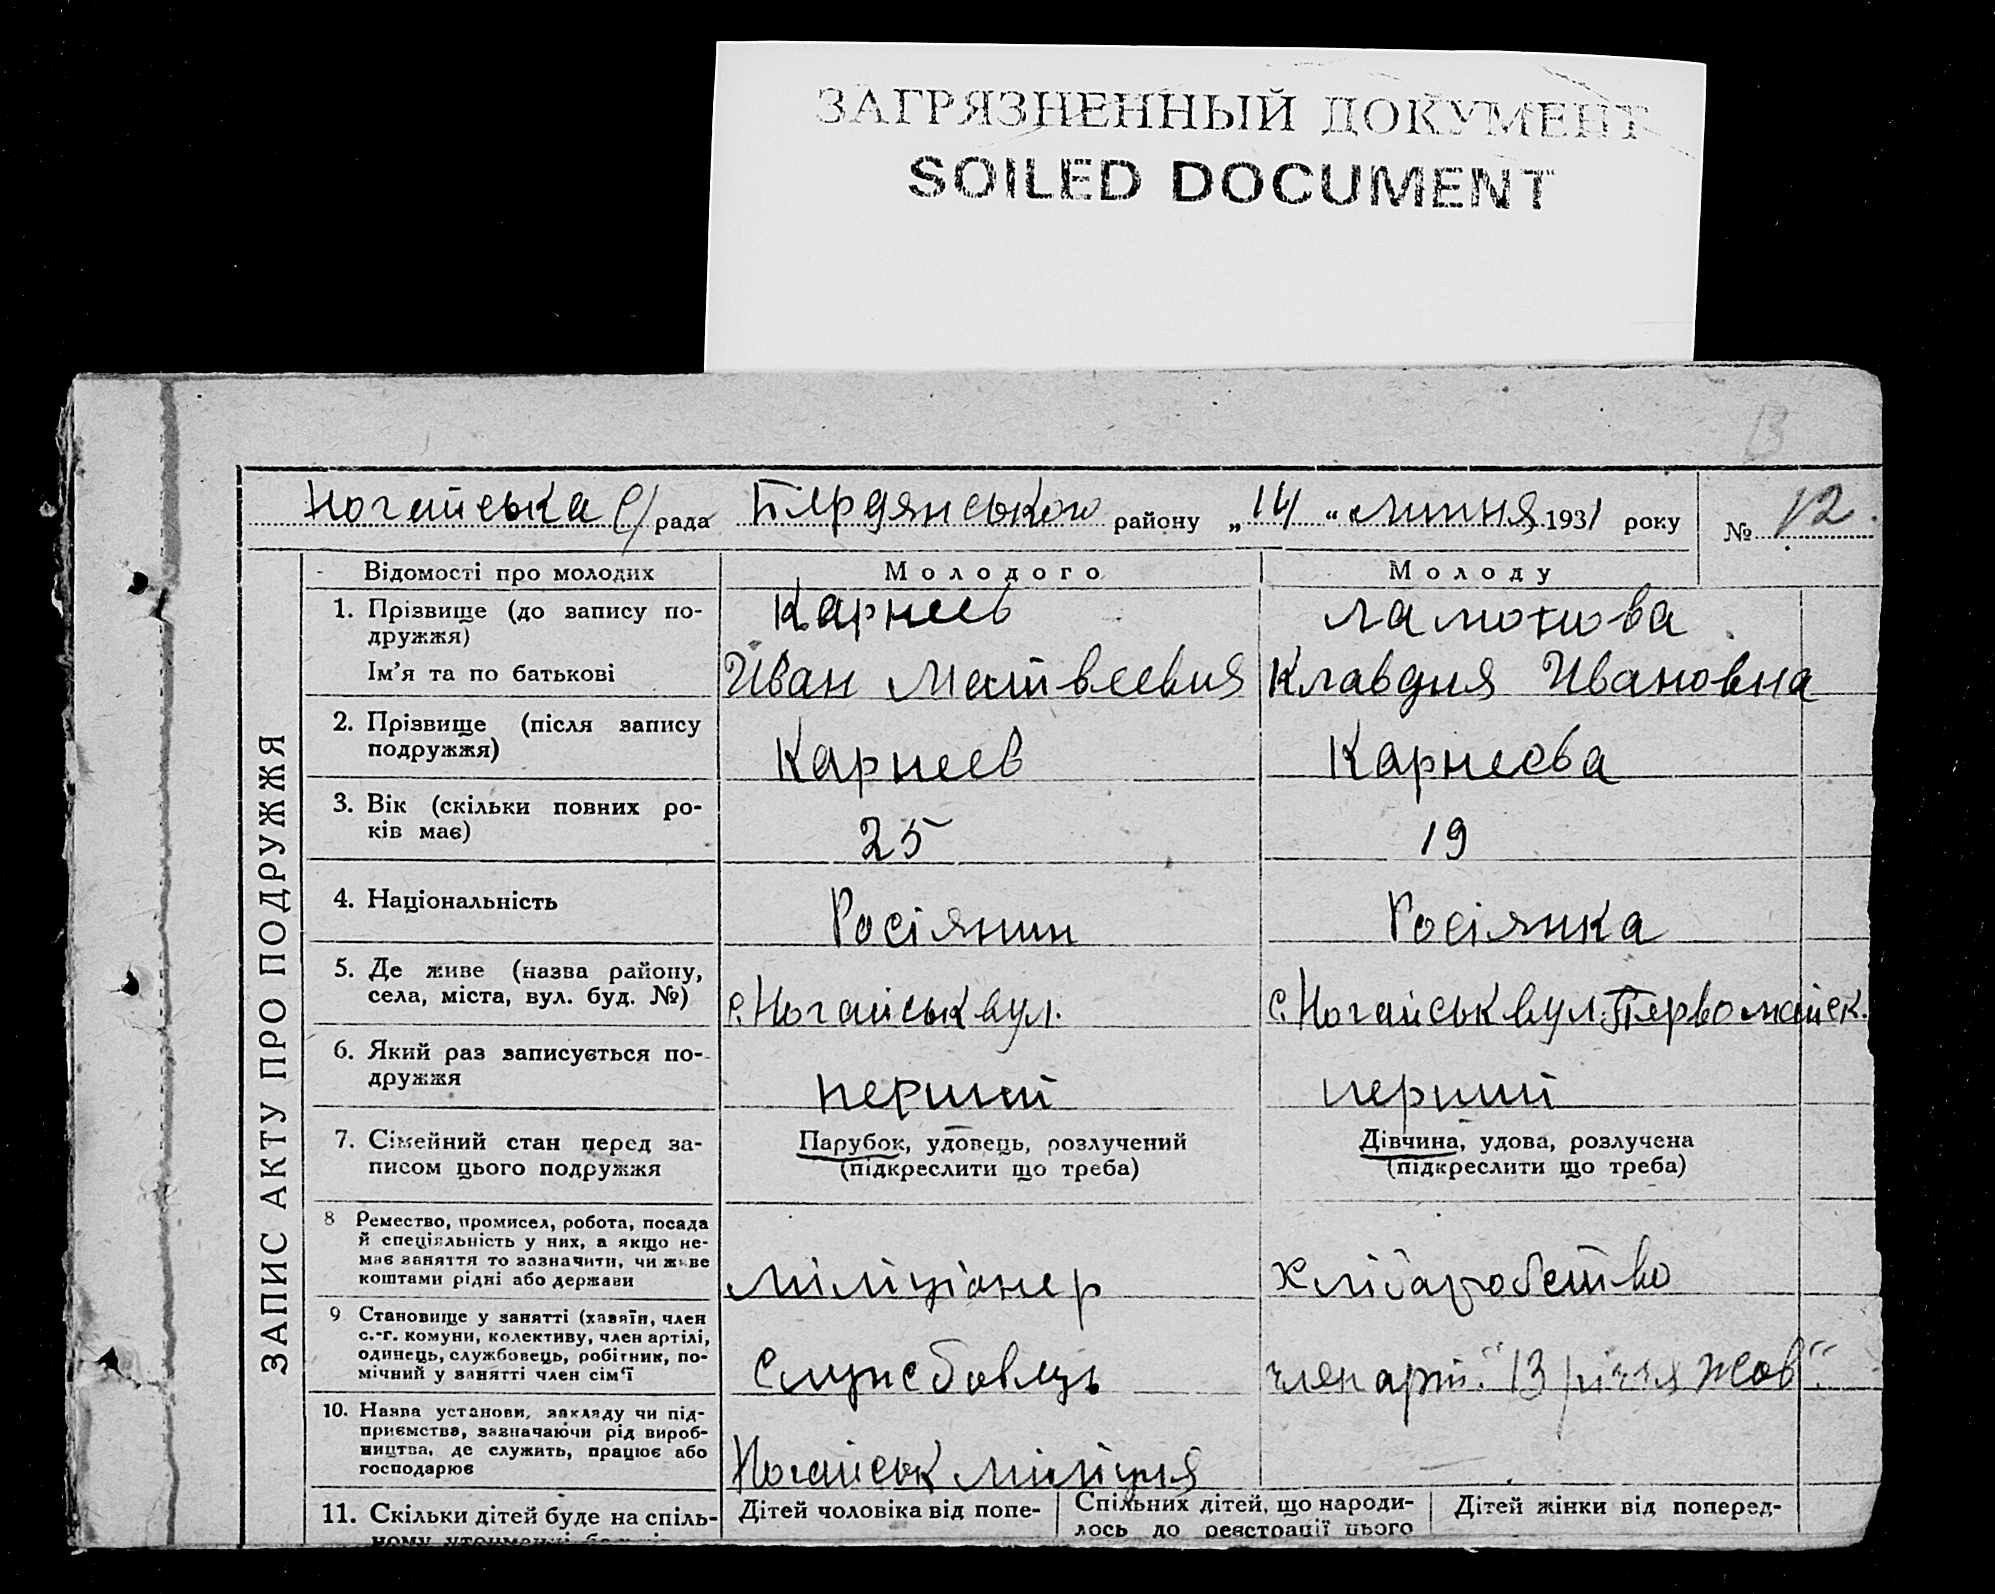 ЗАГРЯЗНЕННЫЙ ДОКУМЕНТ
SOILED DOCUMENT
13
Ногайська с/рада Бердянського району „14“ липня 1931 року № 12
ЗАПИС АКТУ ПРО ПОДРУЖЖЯ
Відомості про молодих Молодого Молоду
1. Прізвище (до запису по-
дружжя) Карнеев
Ім’я та по батькові Иван Матвеевич Клавдия Ивановна
2. Прізвище (після запису
подружжя) Карнеев Карнеева
3. Вік (скільки повних ро-
ків має) 25 19
4. Національність Росіянин Росіянка
5. Де живе (назва району,
села, міста, вул. буд. №) с. Ногайськ вул. с. Ногайськ вул. Первомайск.
6. Який раз записується по-
дружжя перший перший
7. Сімейний стан перед за-
писом цього подружжя
Парубок, удовець, розлучений
(підкреслити що треба)
Дівчина, удова, розлучена
(підкреслити що треба)
8 Ремество, промисел, робота, посада
й спеціяльність у них, а якщо не-
має заняття то зазначити, чи живе
коштами рідні або держави
міліціонер хліборобство
9 Становище у занятті (хазяїн, член
с.-г. комуни, колективу, член артілі,
одинець, службовець, робітник, по-
мічний у занятті член сім’ї
Службовець член арт. “13 річчя Жов.“
10. Назва установи, закладу чи під-
приємства, зазначаючи рід вироб-
ництва, де служить, працює або
господарює
Ногайськ міліція
11. Скільки дітей буде на спіль-
Дітей чоловіка від попе-
Спільних дітей, що народи-
лось до реєстрації цього
Дітей жінки від поперед-